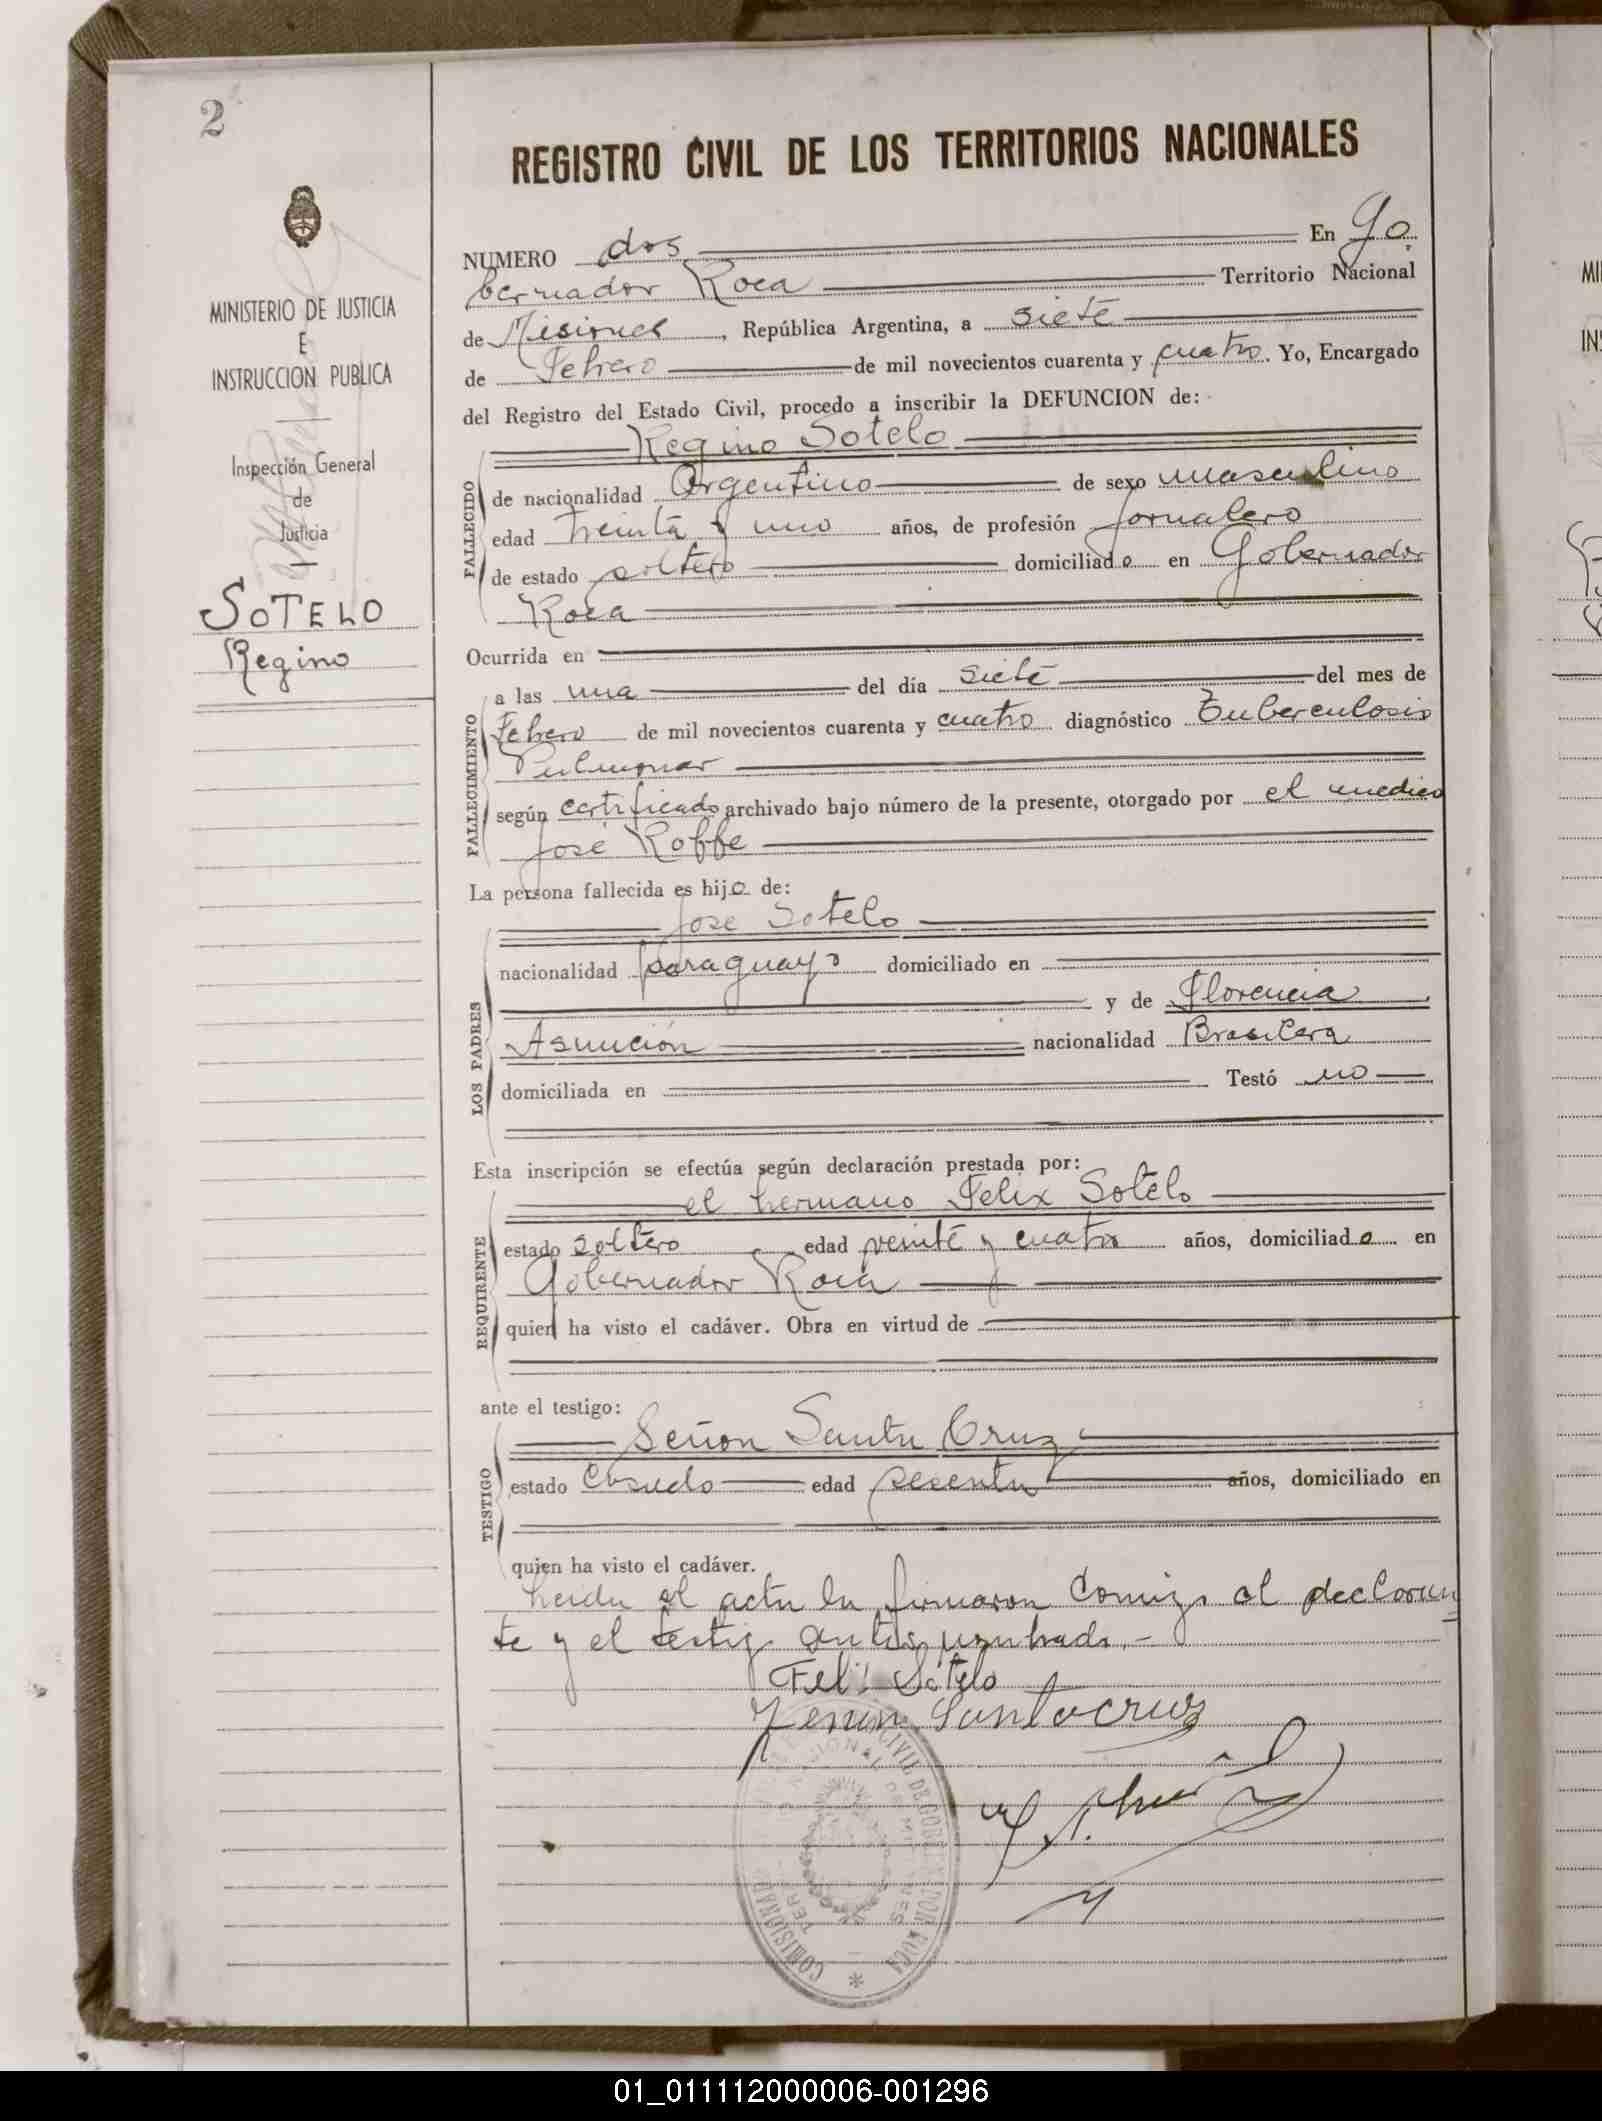 2
MINISTERIO DE JUSTICIA
E
INSTRUCCION PUBLICA
Inspección General
de
Justicia
SOTELO
Regino
REGISTRO CIVIL DE LOS TERRITORIOS NACIONALES
NUMERO dos En Go
bernador Roca Territorio Nacional
de Misiones, República Argentina, a siete
de Febrero de mil novecientos cuarenta y cuatro. Yo, Encargado
del Registro del Estado Civil, procedo a inscribir la DEFUNCION de:
Regino Sotelo
FALLECIDO
de nacionalidad Argentino de sexo masculino
edad treinta y uno años, de profesión jornalero
de estado soltero domiciliado en Gobernador
Roca
Ocurrida en
FALLECIMIENTO
a las una del día siete del mes de
Febrero de mil novecientos cuarenta y cuatro diagnóstico Tuberculosis
Pulmonar
según certificado archivado bajo número de la presente, otorgado por el medico
José Roffe
La persona fallecida es hijo de:
LOS PADRES
Jose Sotelo
nacionalidad paraguayo domiciliado en
y de Florencia
Asunción nacionalidad Brasilera
domiciliada en Testó no
Esta inscripción se efectúa según declaración prestada por:
REQUIRENTE
el hermano Felix Sotelo
estado soltero edad veinte y cuatro años, domiciliado en
Gobernador Roca
quien ha visto el cadáver. Obra en virtud de
ante el testigo:
TESTIGO
Santa Cruz
estado Casado edad sesenta años, domiciliado en
quien ha visto el cadáver.
Leida el acta la firmaron Comigo el declaran
te y el testigo antes nombrado.-
Feli Sotelo
Santacruz
COMISIONADO CIVIL DE GOBERNADOR ROCA
01_011112000006-001296